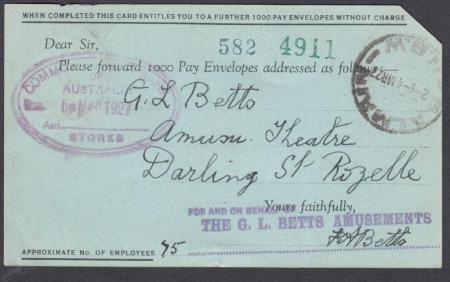 WHEN COMPLETED THIS CARD ENTITLES YOU TO A FURTHER 1000 PAY ENVELOPES WITHOUT CHARGE
Dear Sir,
582 4911
Please forward 1000 Pay Envelopes addressed as follows
OF
AUSTRALIA
1927
STORES
G. L Betts
Amusu. Theatre
Darling St Rozelle
Yours faithfully,
FOR AND ON BEHALF OF
THE G. L. BETTS AMUSEMENTS
Betts
APPROXIMATE NO. OF EMPLOYEES 45